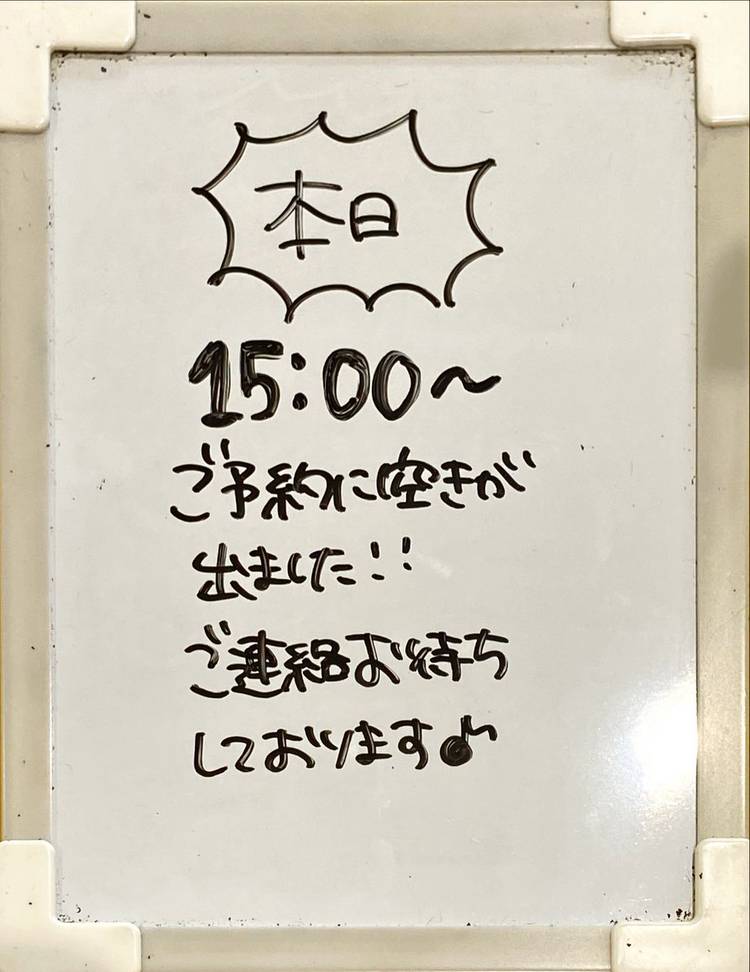 本日
15:00〜
ご予約に空きが
出ました!!
ご連絡お待ち
しております♪